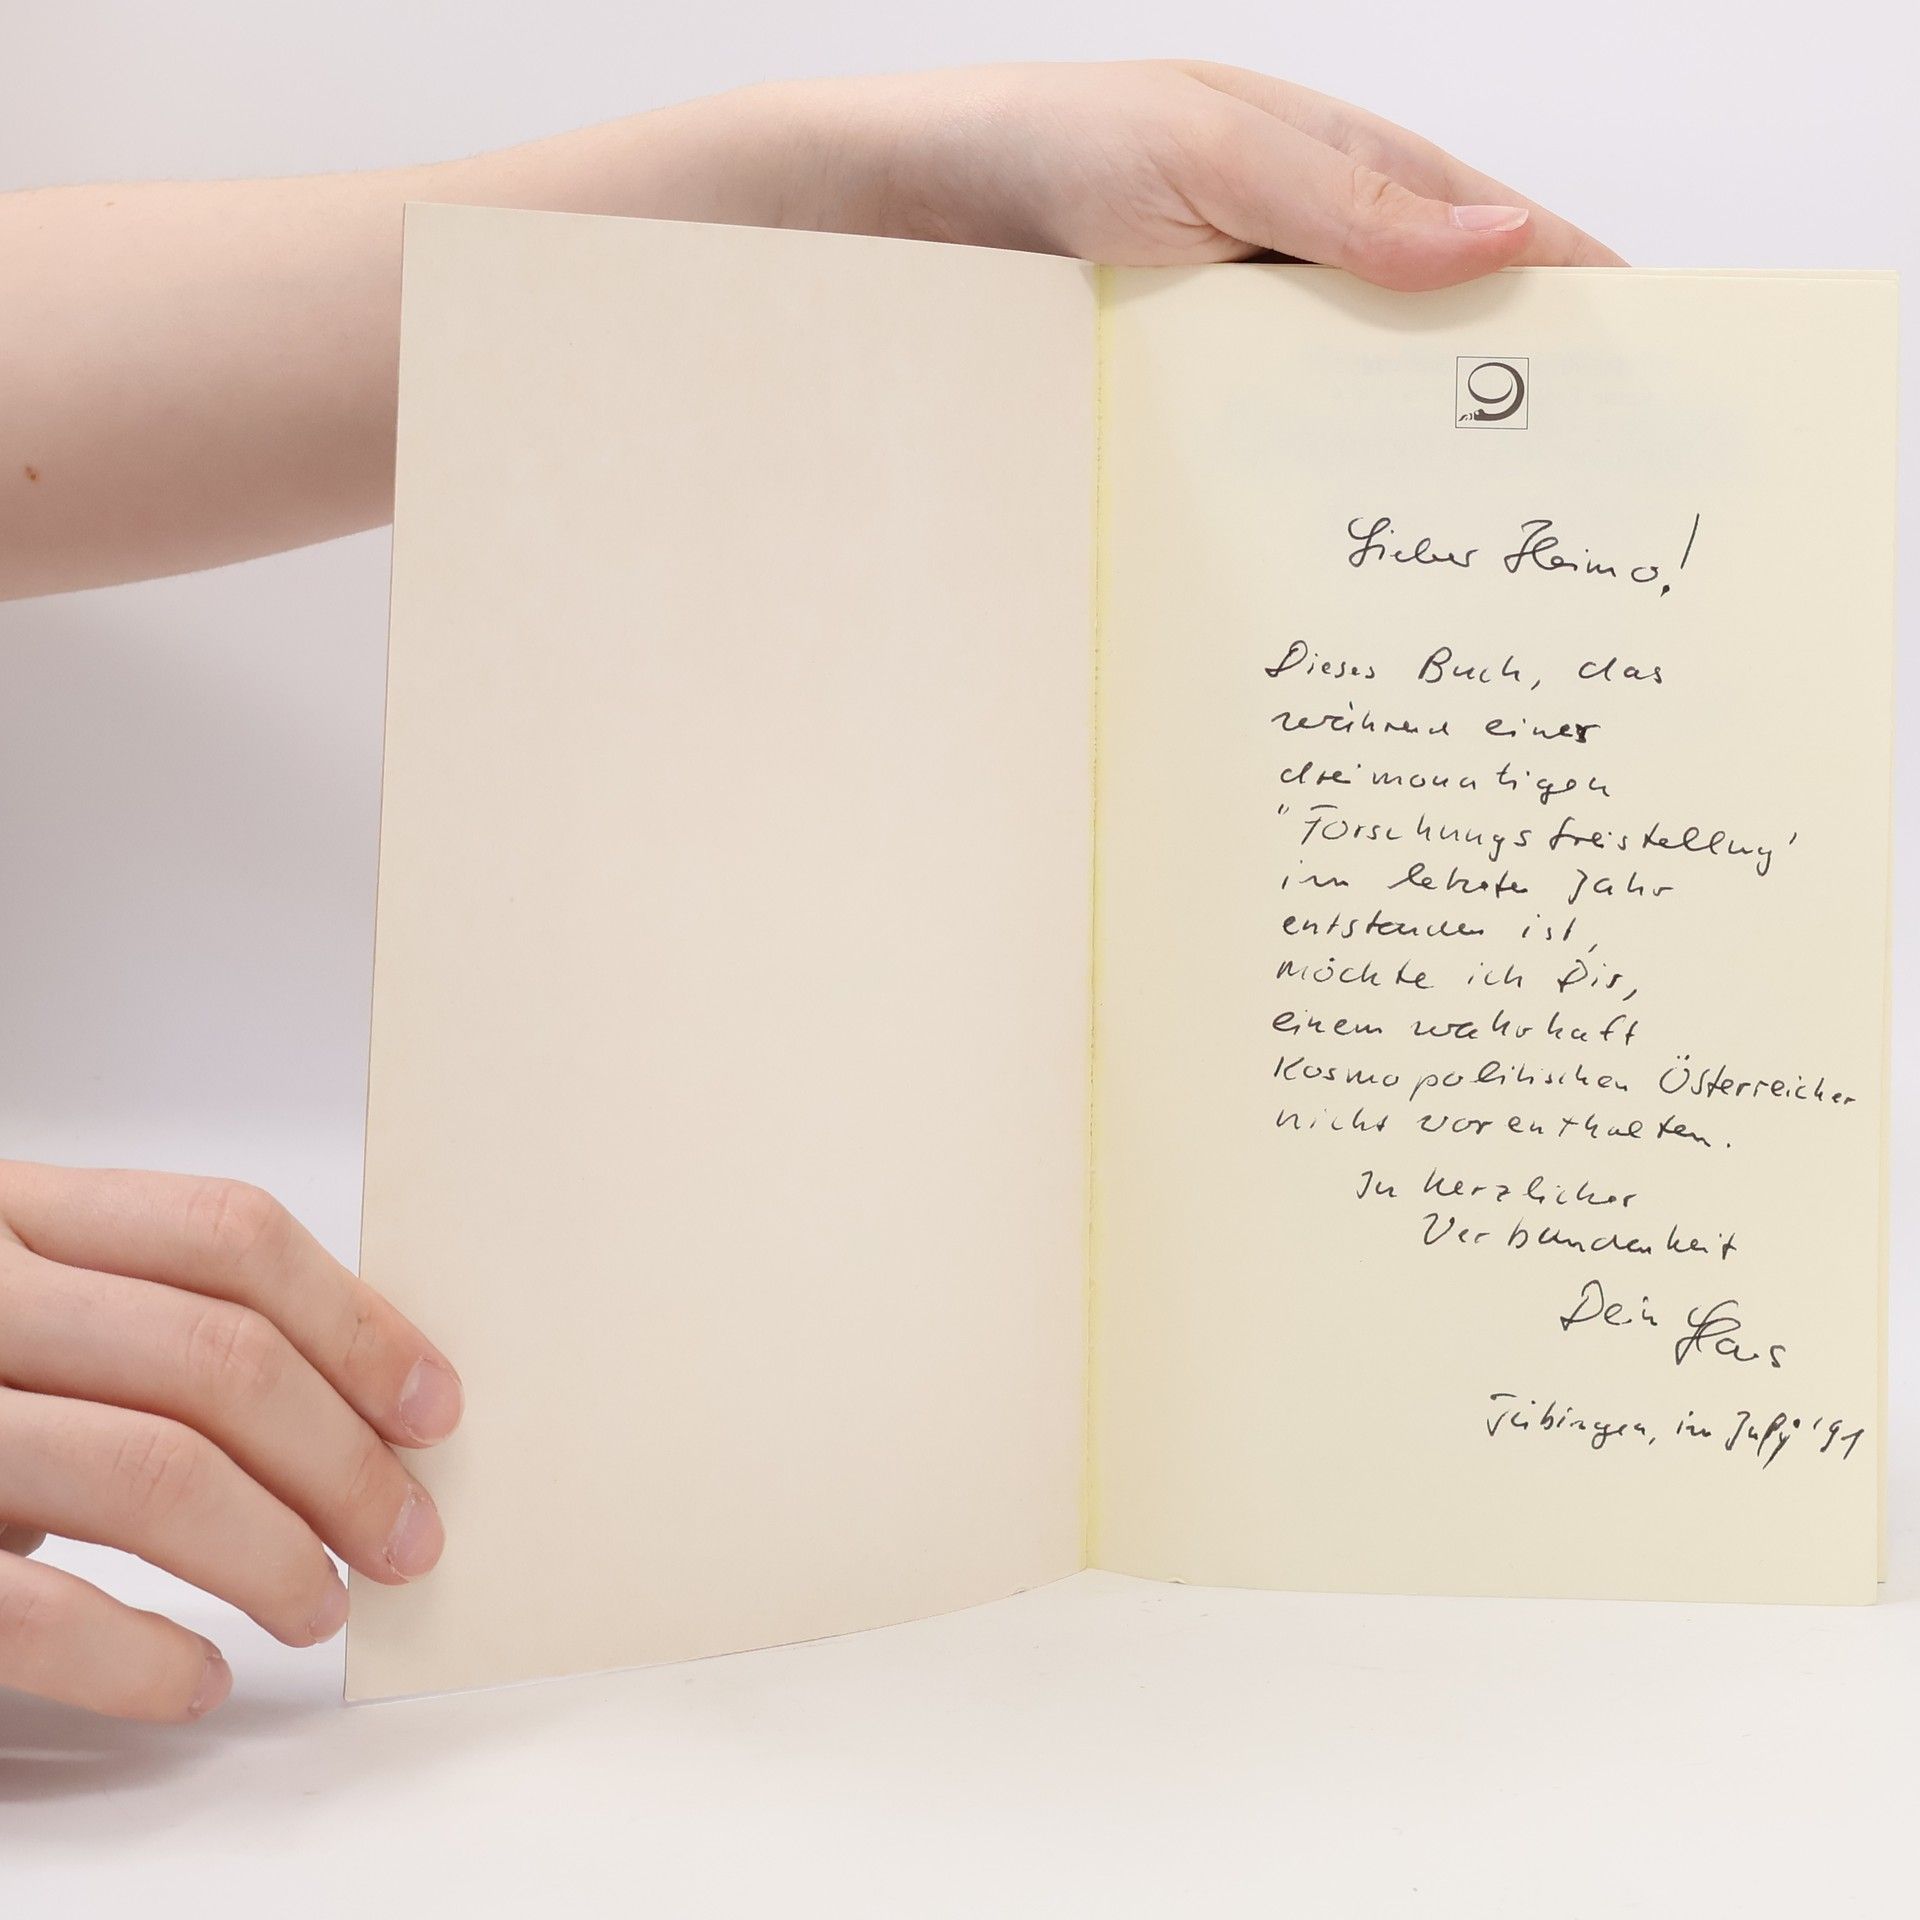 Lieber Heimo!
Dieses Buch, das
während einer
dreimonatigen
"Forschungsfreistellung'
im letzten Jahr
entstanden ist,
möchte ich Dir,
einem wahrhaft
Kosmopolitischen Österreicher
nicht vorenthalten.
In herzlicher
Verbundenheit
Dein Hans
Tübingen, im July '91